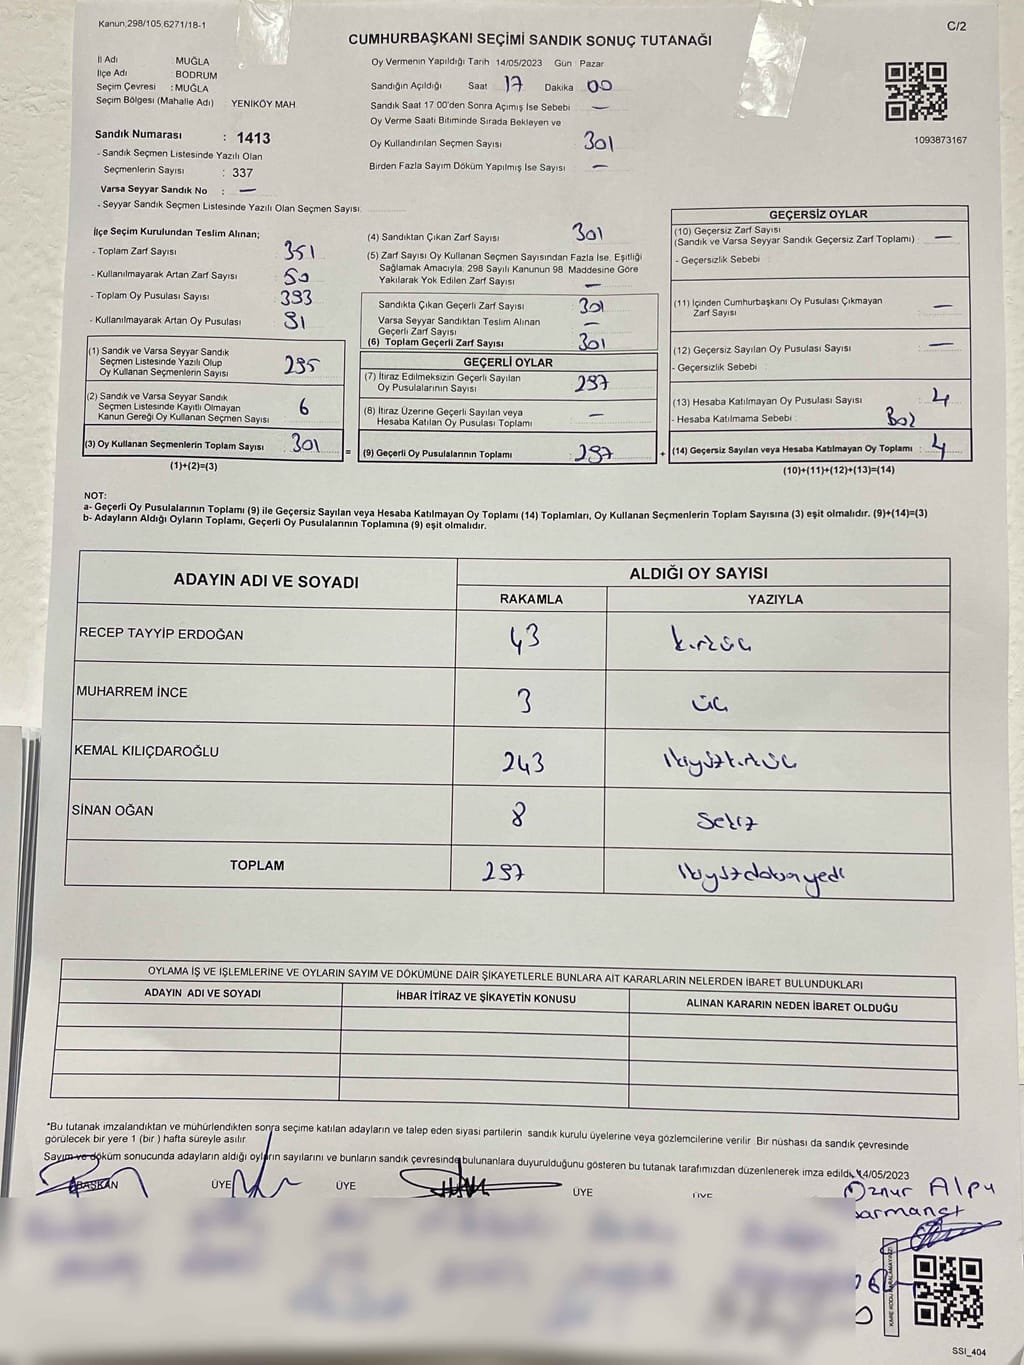 Kanun,298/105,6271/18-1
C/2
CUMHURBAŞKANI SEÇİMİ SANDIK SONUÇ TUTANAĞI
İl Adı MUĞLA
İlçe Adı BODRUM
Seçim Çevresi : MUĞLA
Seçim Bölgesi (Mahalle Adı) YENİKÖY MAH
Sandık Numarası : 1413
- Sandık Seçmen Listesinde Yazılı Olan
Seçmenlerin Sayısı : 337
Varsa Seyyar Sandık No : —
- Seyyar Sandık Seçmen Listesinde Yazılı Olan Seçmen Sayısı
Oy Vermenin Yapıldığı Tarih 14/05/2023 Gün Pazar
Sandığın Açıldığı Saat 17 Dakika 00
Sandık Saat 17 00'den Sonra Açımış İse Sebebi —
Oy Verme Saati Bitiminde Sırada Bekleyen ve
Oy Kullandırılan Seçmen Sayısı 301
Birden Fazla Sayım Döküm Yapılmış İse Sayısı —
1093873167
İlçe Seçim Kurulundan Teslim Alınan;
- Toplam Zarf Sayısı 351
- Kullanılmayarak Artan Zarf Sayısı 50
- Toplam Oy Pusulası Sayısı 393
- Kullanılmayarak Artan Oy Pusulası 91
(1) Sandık ve Varsa Seyyar Sandık
Seçmen Listesinde Yazılı Olup
Oy Kullanan Seçmenlerin Sayısı 295
(2) Sandık ve Varsa Seyyar Sandık
Seçmen Listesinde Kayıtlı Olmayan
Kanun Gereği Oy Kullanan Seçmen Sayısı 6
(3) Oy Kullanan Seçmenlerin Toplam Sayısı : 301
(1)+(2)=(3)
(4) Sandıktan Çıkan Zarf Sayısı 301
(5) Zarf Sayısı Oy Kullanan Seçmen Sayısından Fazla İse, Eşitliği
Sağlamak Amacıyla, 298 Sayılı Kanunun 98 Maddesine Göre
Yakılarak Yok Edilen Zarf Sayısı —
Sandıkta Çıkan Geçerli Zarf Sayısı 301
Varsa Seyyar Sandıktan Teslim Alınan
Geçerli Zarf Sayısı —
(6) Toplam Geçerli Zarf Sayısı 301
GEÇERLİ OYLAR
(7) İtiraz Edilmeksizin Geçerli Sayılan
Oy Pusulalarının Sayısı 297
(8) İtiraz Üzerine Geçerli Sayılan veya
Hesaba Katılan Oy Pusulası Toplamı —
= (9) Geçerli Oy Pusulalarının Toplamı : 297
GEÇERSİZ OYLAR
(10) Geçersiz Zarf Sayısı
(Sandık ve Varsa Seyyar Sandık Geçersiz Zarf Toplamı) : —
- Geçersizlik Sebebi
(11) İçinden Cumhurbaşkanı Oy Pusulası Çıkmayan
Zarf Sayısı —
(12) Geçersiz Sayılan Oy Pusulası Sayısı —
- Geçersizlik Sebebi
(13) Hesaba Katılmayan Oy Pusulası Sayısı 4
- Hesaba Katılmama Sebebi : Boş
+ (14) Geçersiz Sayılan veya Hesaba Katılmayan Oy Toplamı : 4
(10)+(11)+(12)+(13)=(14)
NOT:
a- Geçerli Oy Pusulalarının Toplamı (9) ile Geçersiz Sayılan veya Hesaba Katılmayan Oy Toplamı (14) Toplamları, Oy Kullanan Seçmenlerin Toplam Sayısına (3) eşit olmalıdır. (9)+(14)=(3)
b- Adayların Aldığı Oyların Toplamı, Geçerli Oy Pusulalarının Toplamına (9) eşit olmalıdır.
ADAYIN ADI VE SOYADI ALDIĞI OY SAYISI
RAKAMLA YAZIYLA
RECEP TAYYİP ERDOĞAN 43 kırküç
MUHARREM İNCE 3 üç
KEMAL KILIÇDAROĞLU 243 ikiyüzkırküç
SİNAN OĞAN 8 Sekiz
TOPLAM 297 ikiyüzdoksanyedi
OYLAMA İŞ VE İŞLEMLERİNE VE OYLARIN SAYIM VE DÖKÜMÜNE DAİR ŞİKAYETLERLE BUNLARA AİT KARARLARIN NELERDEN İBARET BULUNDUKLARI
ADAYIN ADI VE SOYADI İHBAR İTİRAZ VE ŞİKAYETİN KONUSU ALINAN KARARIN NEDEN İBARET OLDUĞU
*Bu tutanak imzalandıktan ve mühürlendikten sonra seçime katılan adayların ve talep eden siyasi partilerin sandık kurulu üyelerine veya gözlemcilerine verilir Bir nüshası da sandık çevresinde
görülecek bir yere 1 (bir ) hafta süreyle asılır
Sayım ve döküm sonucunda adayların aldığı oyların sayılarını ve bunların sandık çevresinde bulunanlara duyurulduğunu gösteren bu tutanak tarafımızdan düzenlenerek imza edildi. 14/05/2023
BAŞKAN ÜYE ÜYE ÜYE ÜYE
Öznur Alpu
KARE KODU KARALAMAYINIZ
SSI_404